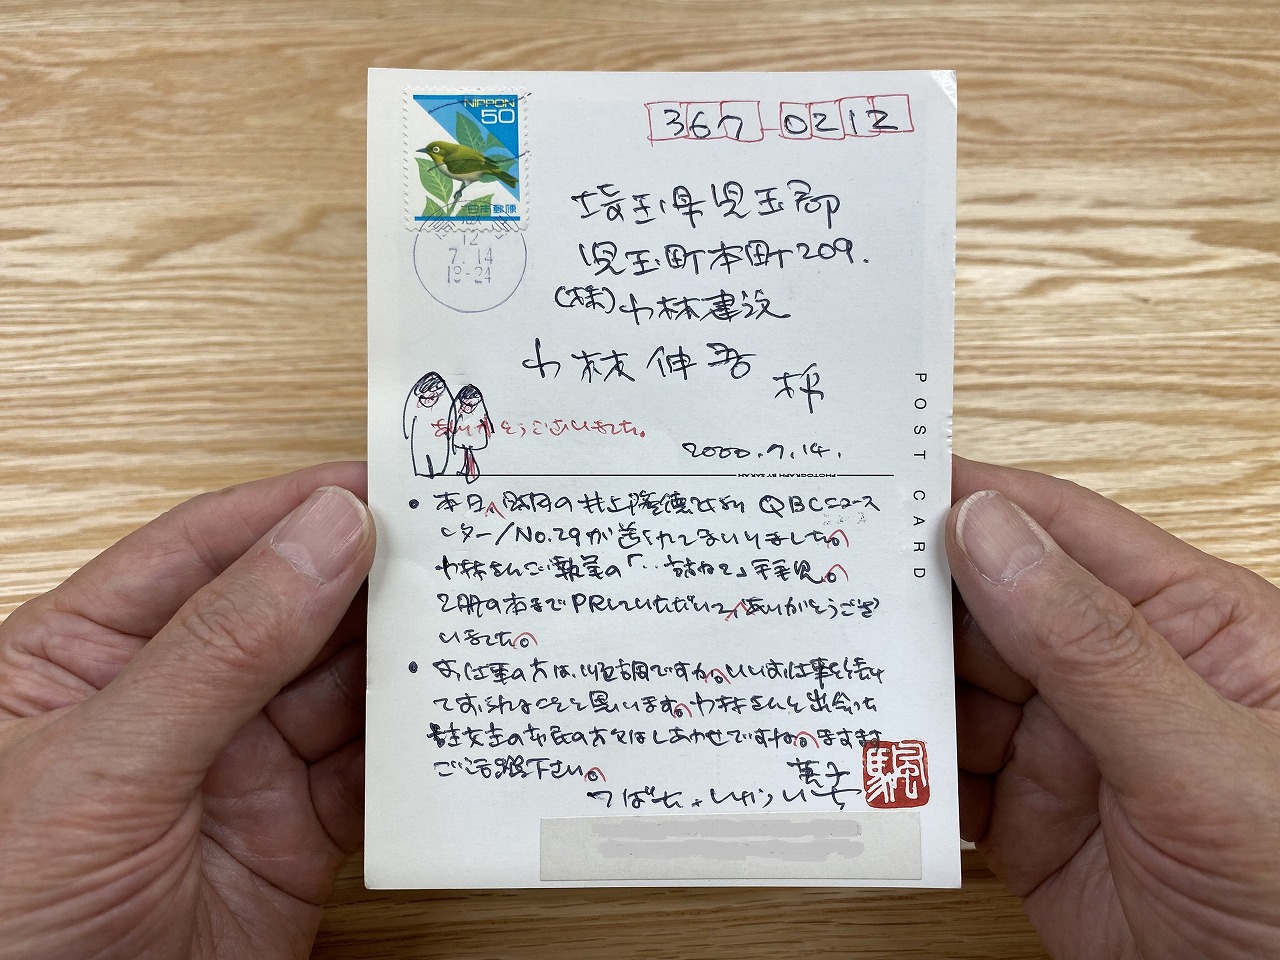 NIPPON
50
日本郵便
12
7.14
18-24
367 0212
埼玉県児玉郡
児玉町本町209.
(株)小林建設
小林伸吾 様
ありがとうございました。
2000.7.14.
PHOTOGRAPH BY SARAH
POST CARD
• 本日、の井上 QBCニュース
レター/No.29が送られてまいりました。
小林さんご執筆の「‥訪ねて」拝見。
2冊の本までPRしていただいて、ありがとうござ
いました。
• お仕事の方は、順調ですか。いいお仕事を続け
ておられることと思います。小林さんと出会った
児玉の方々はしあわせですね。ますます
ご活躍下さい。
つばた